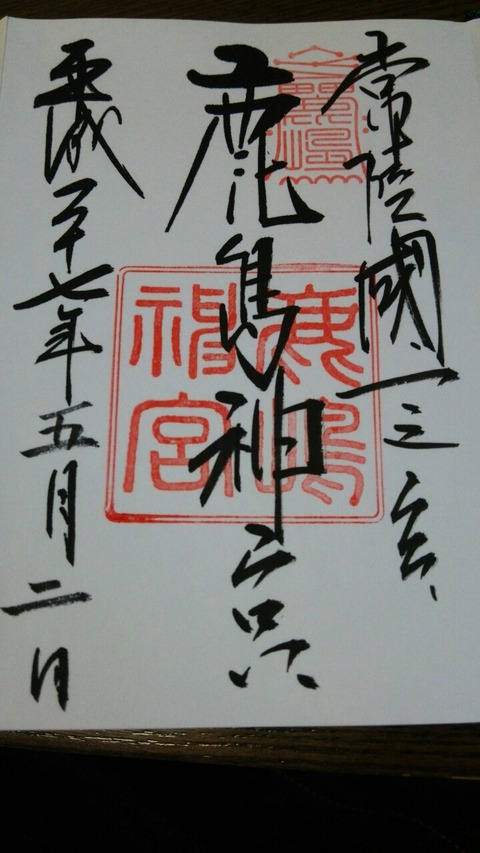 常陸國一之宮
鹿島神宮
平成二十七年五月二日
鹿嶋神宮